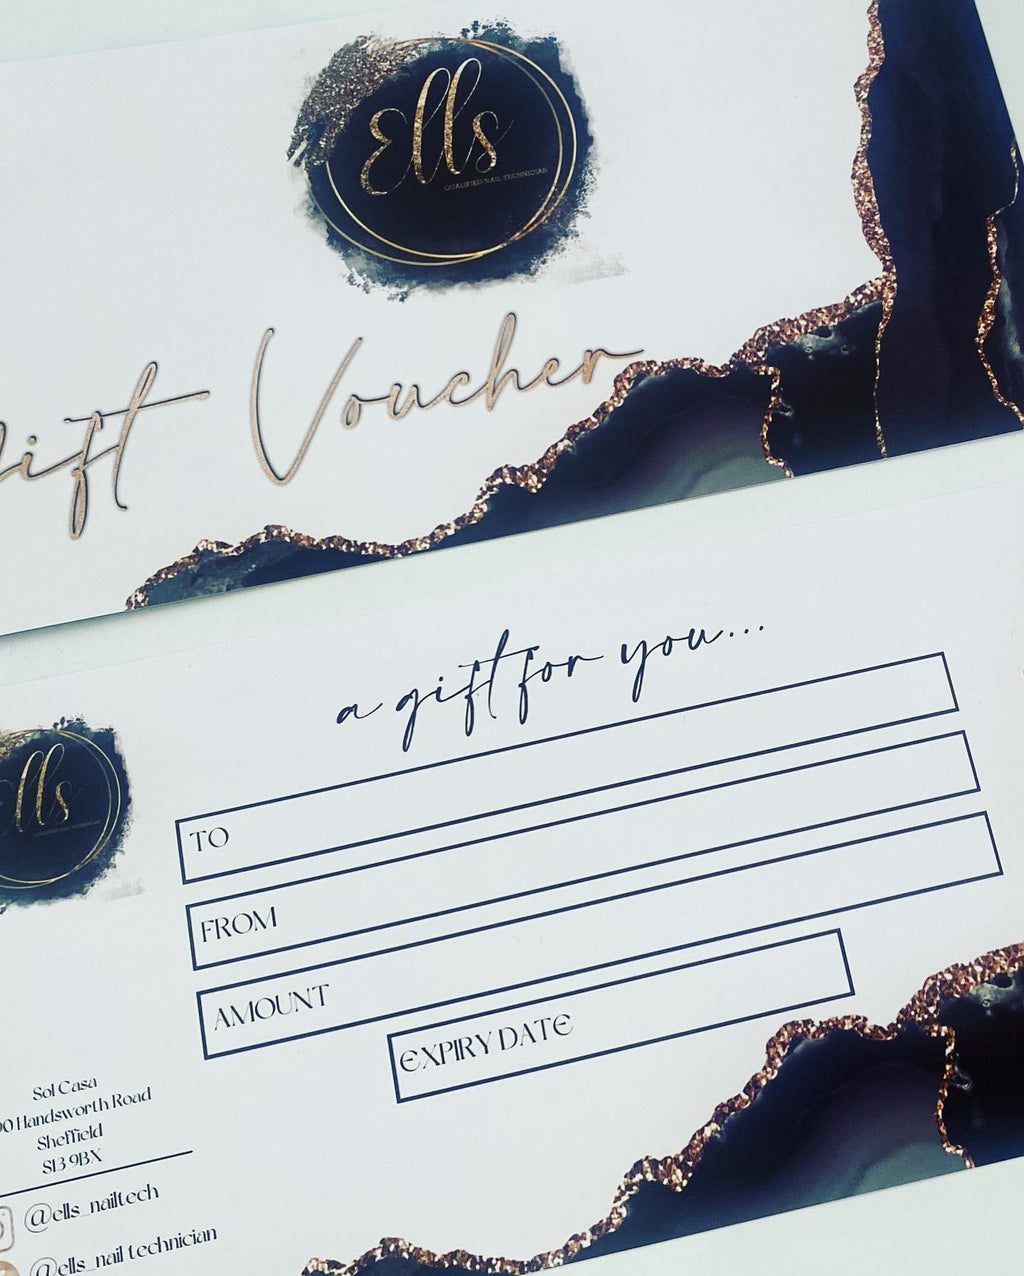 Ells
QUALIFIED NAIL TECHNICIAN
Gift Voucher
a gift for you...
Ells
TO
FROM
AMOUNT
EXPIRY DATE
Sol Casa
Handsworth Road
Sheffield
S13 9BX
@ells_nailtech
@ells_nail technician